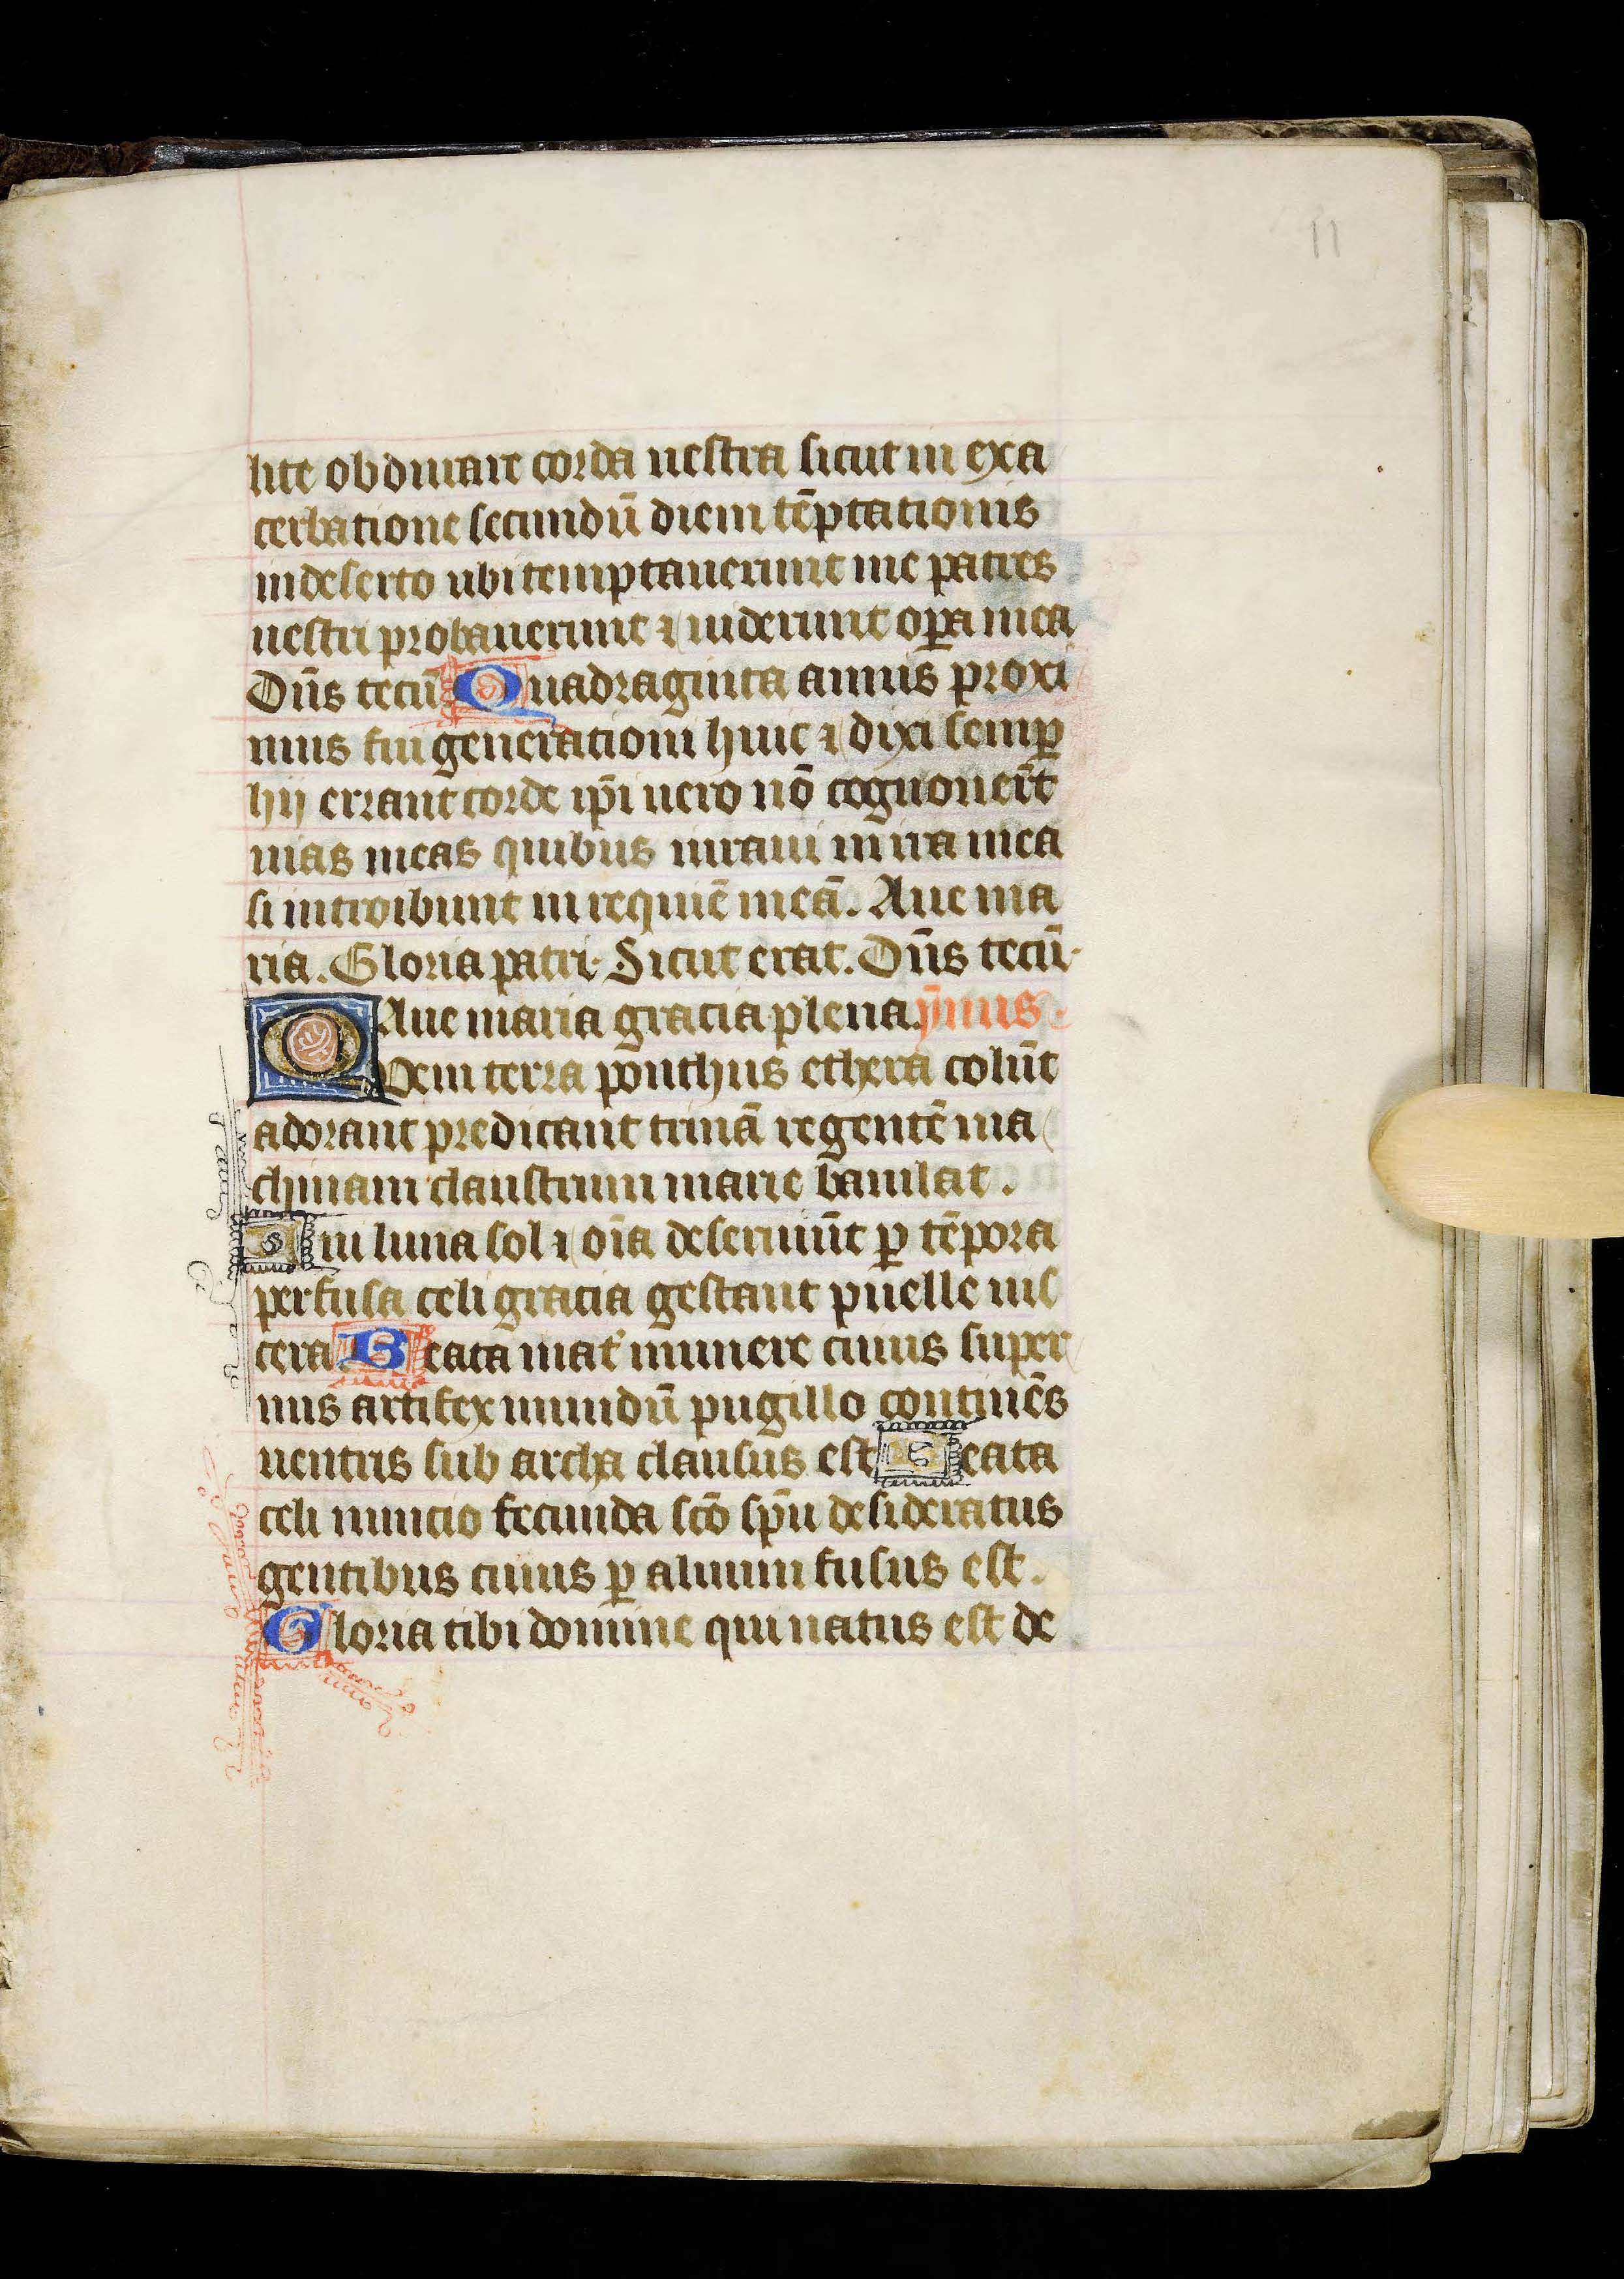 11
lite obdurare corda uestra sicut in exa
cerbatione secundū diem tēptationis
in deserto ubi temptauerunt me patres
uestri probauerunt ⁊ uiderunt oꝑa mea
Dn̄s tecū Quadraginta annis proxi
mus fui generationi huic ⁊ dixi semꝑ
hij errant corde ip̄i uero nō cognouer̄t
uias meas quibus iuraui in ira mea
si introibunt in requiē meā. Aue ma
ria. Gloria patri. Sicut erat. Dn̄s tecū.
Aue maria gracia plena. ȳmus.
Quem terra ponthus ethera colūt
adorant predicant trinā regentē ma
chinam claustrum marie baiulat.
Cui luna sol ⁊ oīa deseruiūt ꝑ tēpora
perfusa celi gracia gestant puelle uis
cera. Beata mat̄ munere cuius super
nus artifex mundū pugillo continēs
uentris sub archa clausus est Beata
celi nuncio fecunda sc̄o sp̄u desideratus
gentibus cuius ꝑ aluum fusus est.
Gloria tibi domine qui natus est de